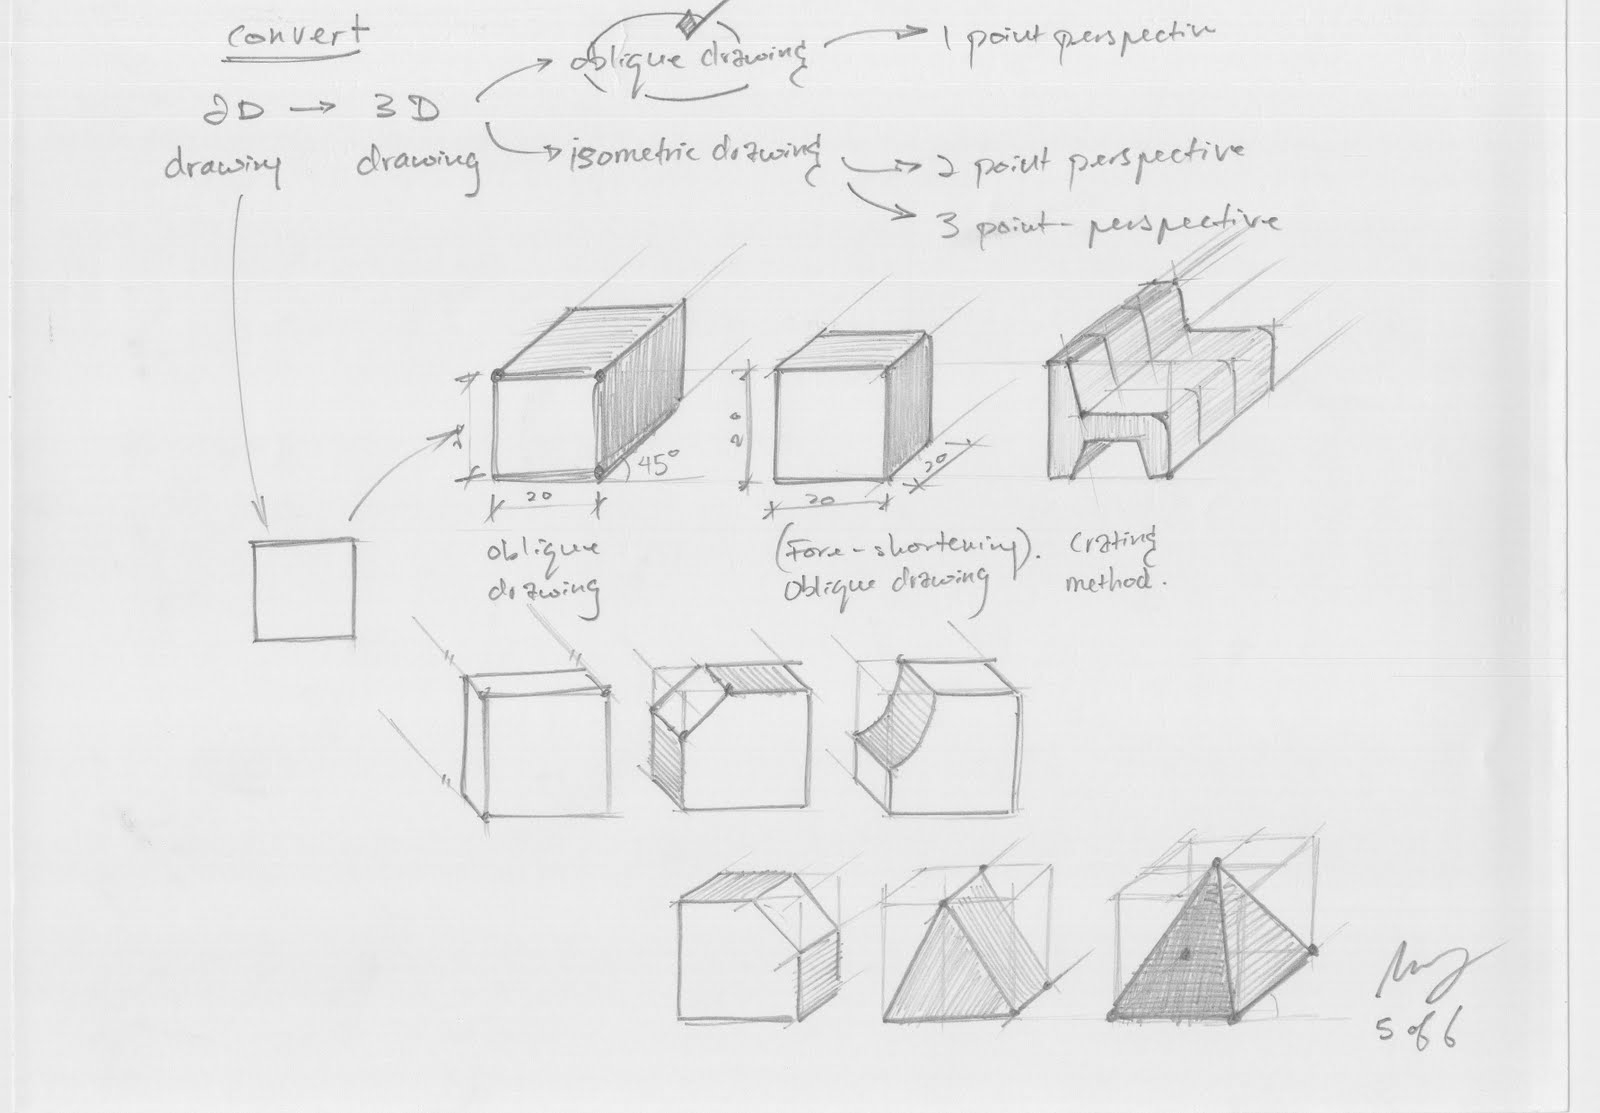 convert
oblique drawing
1 point perspectiv
2D → 3D
drawing drawing
isometric drawing
2 point perspective
3 point perspective
45°
20
20
20
20
oblique
drawing
(Fore-shortening).
oblique drawing
crating
method.
5 of 6